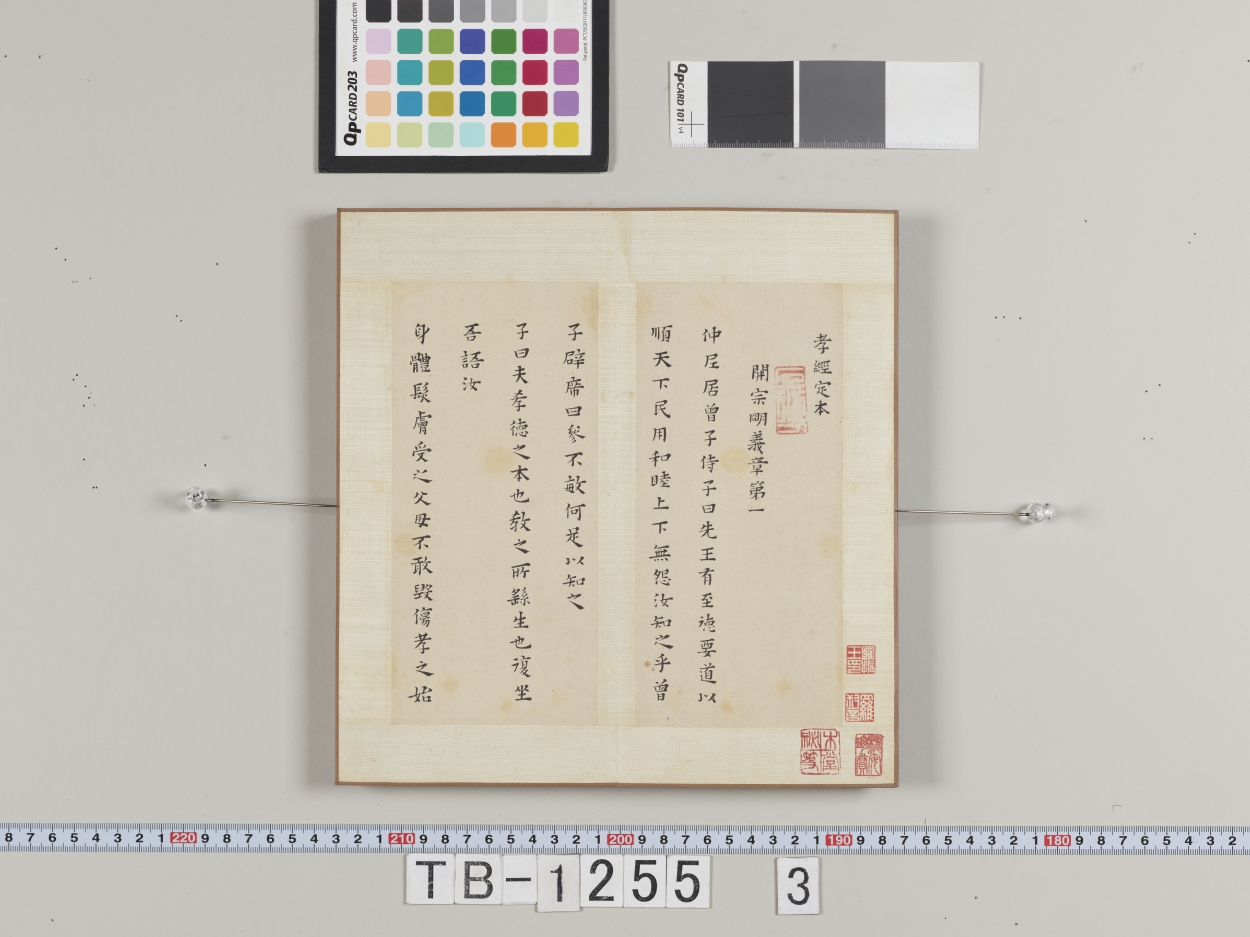 孝經定本
開宗明義章第一
仲尼居曾子侍子曰先王有至德要道以
順天下民用和睦上下無怨汝知之乎曾
子辟席曰參不敏何足以知之
子曰夫孝德之本也教之所繇生也復坐
吾語汝
身體髮膚受之父母不敢毀傷孝之始
QPCARD 203
www.qpcard.com
QPCARD 101 v4
8 7 6 5 4 3 2 1 220 9 8 7 6 5 4 3 2 1 210 9 8 7 6 5 4 3 2 1 200 9 8 7 6 5 4 3 2 1 190 9 8 7 6 5 4 3 2 1 180 9 8 7 6 5 4 3 2
TB-1255 3